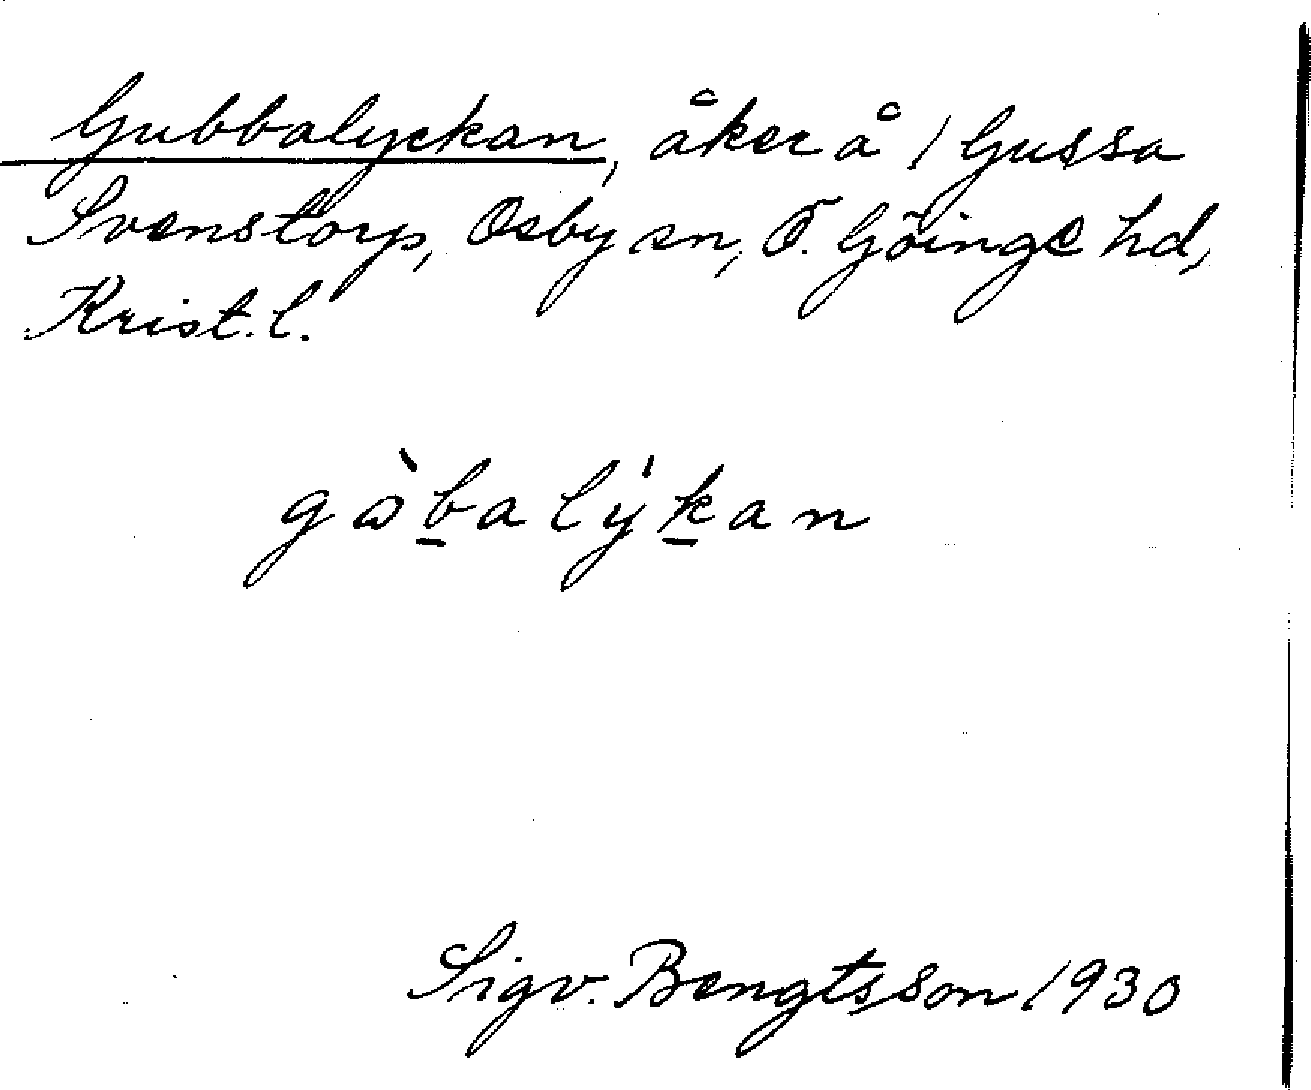 Gubbalyckan, åker å / Gussa
Svenstorp, Osby sn, Ö. Göinge hd,
Krist. l.
gɷ̀b̲alýk̲an
Sigv. Bengtsson 1930